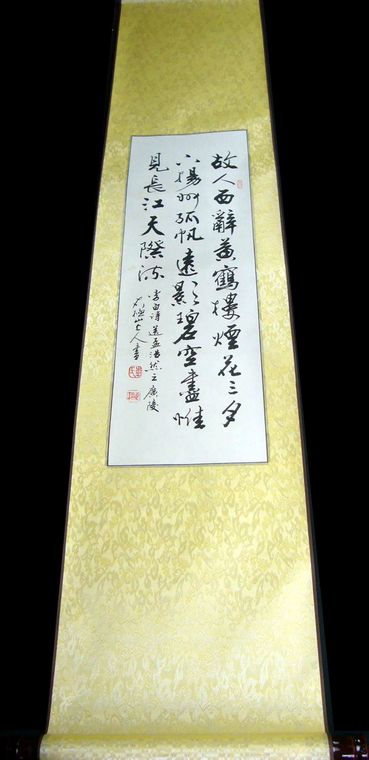 故人西辭黄鶴樓煙花三月
下揚州孤帆遠影碧空盡惟
見長江天際流
李白詩送孟浩然之廣陵
山人書